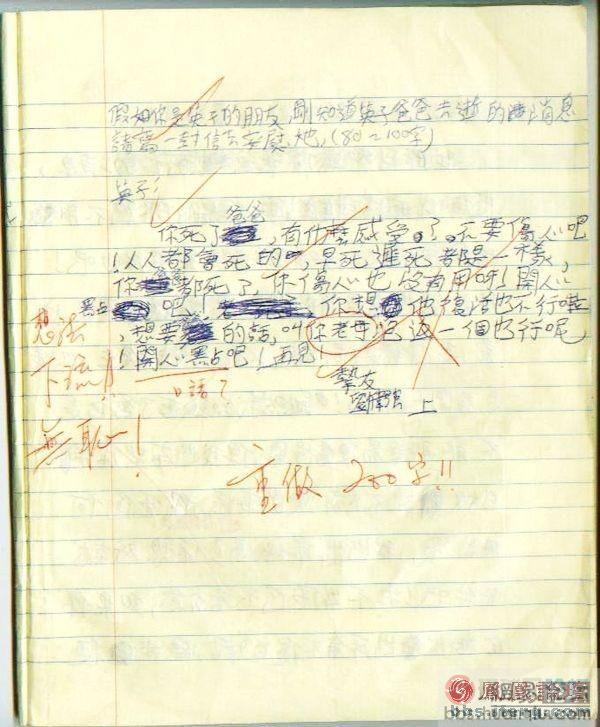 假如你是英子的朋友,剛知道英子爸爸去逝的消息
請寫一封信去安慰她,(80~100字)
英子:
你死了爸爸,有什麼感受。了。不要傷心吧
!人人都會死的,早死遲死都是一樣,
你爸爸都死了,你傷心也沒有用呀!開心
點吧!你想他復活也不行啦
,想要爸爸的話,叫你老母記過一個也行呢
!開心點吧!再見
摯友
劉偉強 上
想法
下流!!
無恥!
口話?
重做 200字!!
鳳凰論壇
bbs.ifeng.com